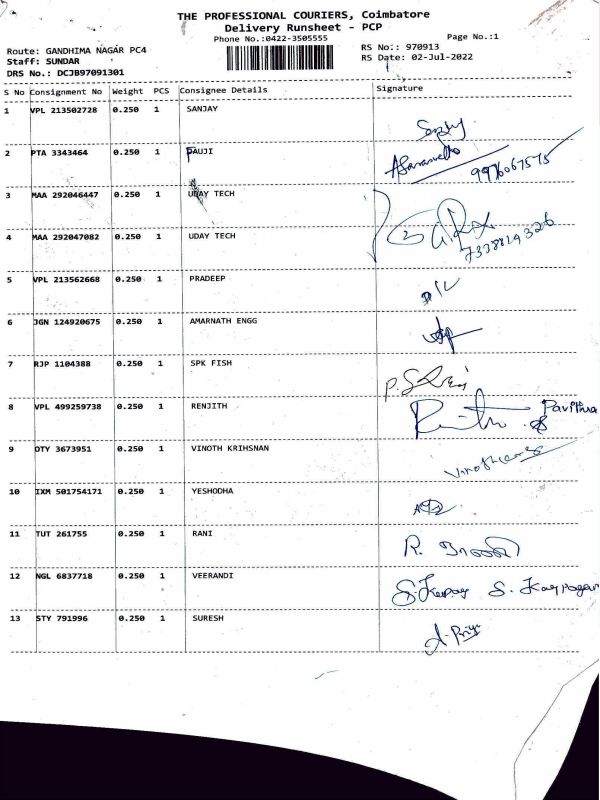 THE PROFESSIONAL COURIERS, Coimbatore
Delivery Runsheet - PCP
Phone No.:0422-3505555
Page No.:1
Route: GANDHIMA NAGAR PC4
RS No.: 970913
Staff: SUNDAR
RS Date: 02-Jul-2022
DRS No.: DCJB97091301
S No Consignment No Weight PCS Consignee Details Signature
1 VPL 213502728 0.250 1 SANJAY Sanjay
2 PTA 3343464 0.250 1 FAUJI 9976067575
3 MAA 292046447 0.250 1 UDAY TECH
4 MAA 292047082 0.250 1 UDAY TECH 7338814326
5 VPL 213562668 0.250 1 PRADEEP
6 JGN 124920675 0.250 1 AMARNATH ENGG
7 RJP 1104388 0.250 1 SPK FISH
8 VPL 499259738 0.250 1 RENJITH Pavithra
9 OTY 3673951 0.250 1 VINOTH KRIHSNAN
10 IXM 501754171 0.250 1 YESHODHA
11 TUT 261755 0.250 1 RANI R. ராணி
12 NGL 6837718 0.250 1 VEERANDI
13 STY 791996 0.250 1 SURESH